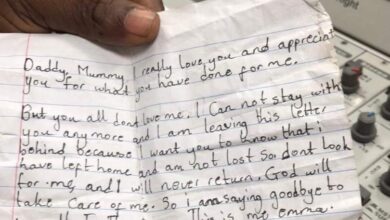 Daddy, Mummy, I really love you and appreciat
you for what you have done for me.
But you all dont love me. I Can not stay with
you anymore and I am leaving this letter
behind because I want you to know that i
have left home and am not lost so. dont look
for me, and I will never return. God will
take Care of me. So i am saying goodbye to
This is me emma.